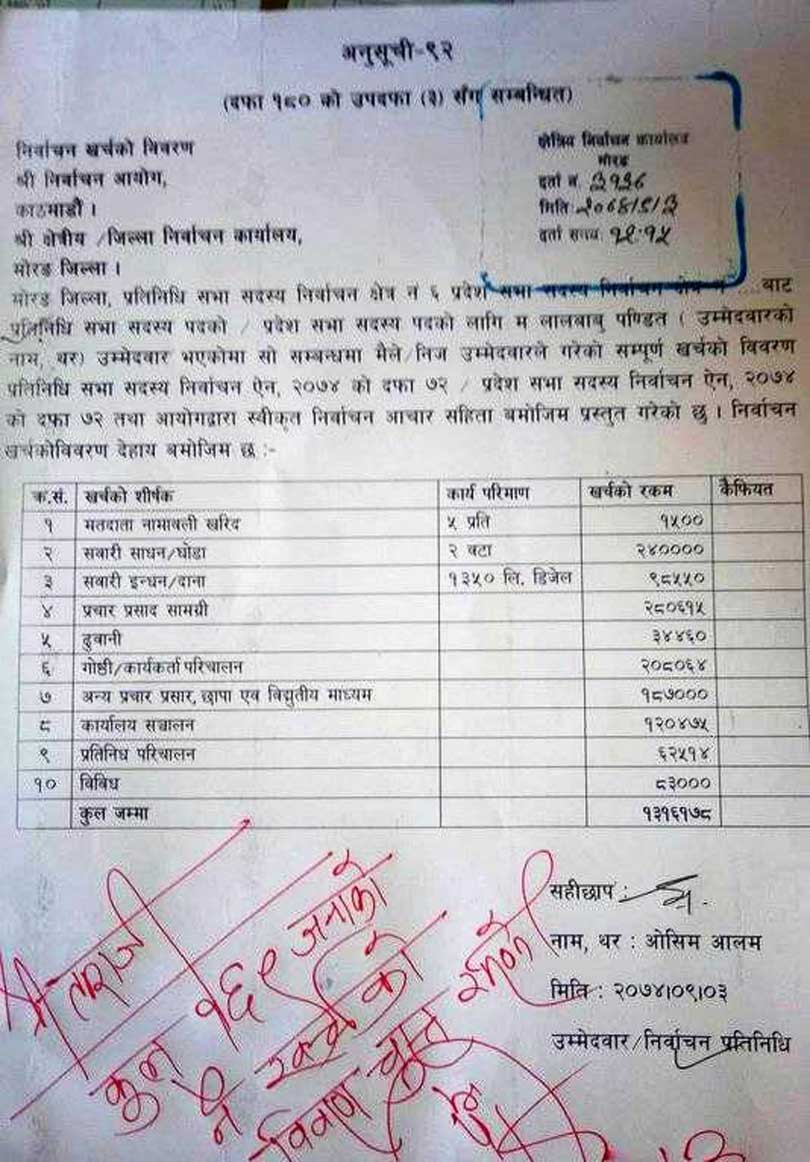 अनुसूची-१२
(दफा १८० को उपदफा (३) सँग सम्बन्धित)
निर्वाचन खर्चको विवरण
श्री निर्वाचन आयोग,
काठमाडौं ।
श्री क्षेत्रीय /जिल्ला निर्वाचन कार्यालय,
मोरङ जिल्ला ।
क्षेत्रिय निर्वाचन कार्यालय
मोरङ
दर्ता नं.
मिति:
दर्ता समय: १२:१५
मोरङ जिल्ला, प्रतिनिधि सभा सदस्य निर्वाचन क्षेत्र नं ६ प्रदेश सभा सदस्य निर्वाचन क्षेत्र नं ....बाट
प्रतिनिधि सभा सदस्य पदको / प्रदेश सभा सदस्य पदको लागि म लालबाबु पण्डित ( उम्मेदवारको
नाम, थर) उम्मेदवार भएकोमा सो सम्बन्धमा मैले/निज उम्मेदवारले गरेको सम्पूर्ण खर्चको विवरण
प्रतिनिधि सभा सदस्य निर्वाचन ऐन, २०७४ को दफा ७२ / प्रदेश सभा सदस्य निर्वाचन ऐन, २०७४
को दफा ७२ तथा आयोगद्वारा स्वीकृत निर्वाचन आचार सहिता बमोजिम प्रस्तुत गरेको छु । निर्वाचन
खर्चकोविवरण देहाय बमोजिम छ :-
क.सं. खर्चको शीर्षक कार्य परिमाण खर्चको रकम कैफियत
१ मतदाता नामावली खरिद ५ प्रति १५००
२ सवारी साधन/घोडा २ वटा २४००००
३ सवारी इन्धन/दाना १३५० लि. डिजेल ९८५५०
४ प्रचार प्रसाद सामग्री २८०६१५
५ ढुवानी ३४४६०
६ गोष्ठी/कार्यकर्ता परिचालन २०८०६४
७ अन्य प्रचार प्रसार, छापा एव विद्युतीय माध्यम १८७०००
८ कार्यालय सञ्चालन १२०४७५
९ प्रतिनिध परिचालन ६२५१४
१० विविध ८३०००
कुल जम्मा १३१६१७८
सहीछाप :
नाम, थर : ओसिम आलम
मिति : २०७४।०९।०३
उम्मेदवार/निर्वाचन प्रतिनिधि
कुल १६९ जनाको